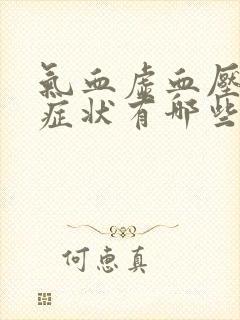 氣血虛血壓
症狀有哪些
何惠真